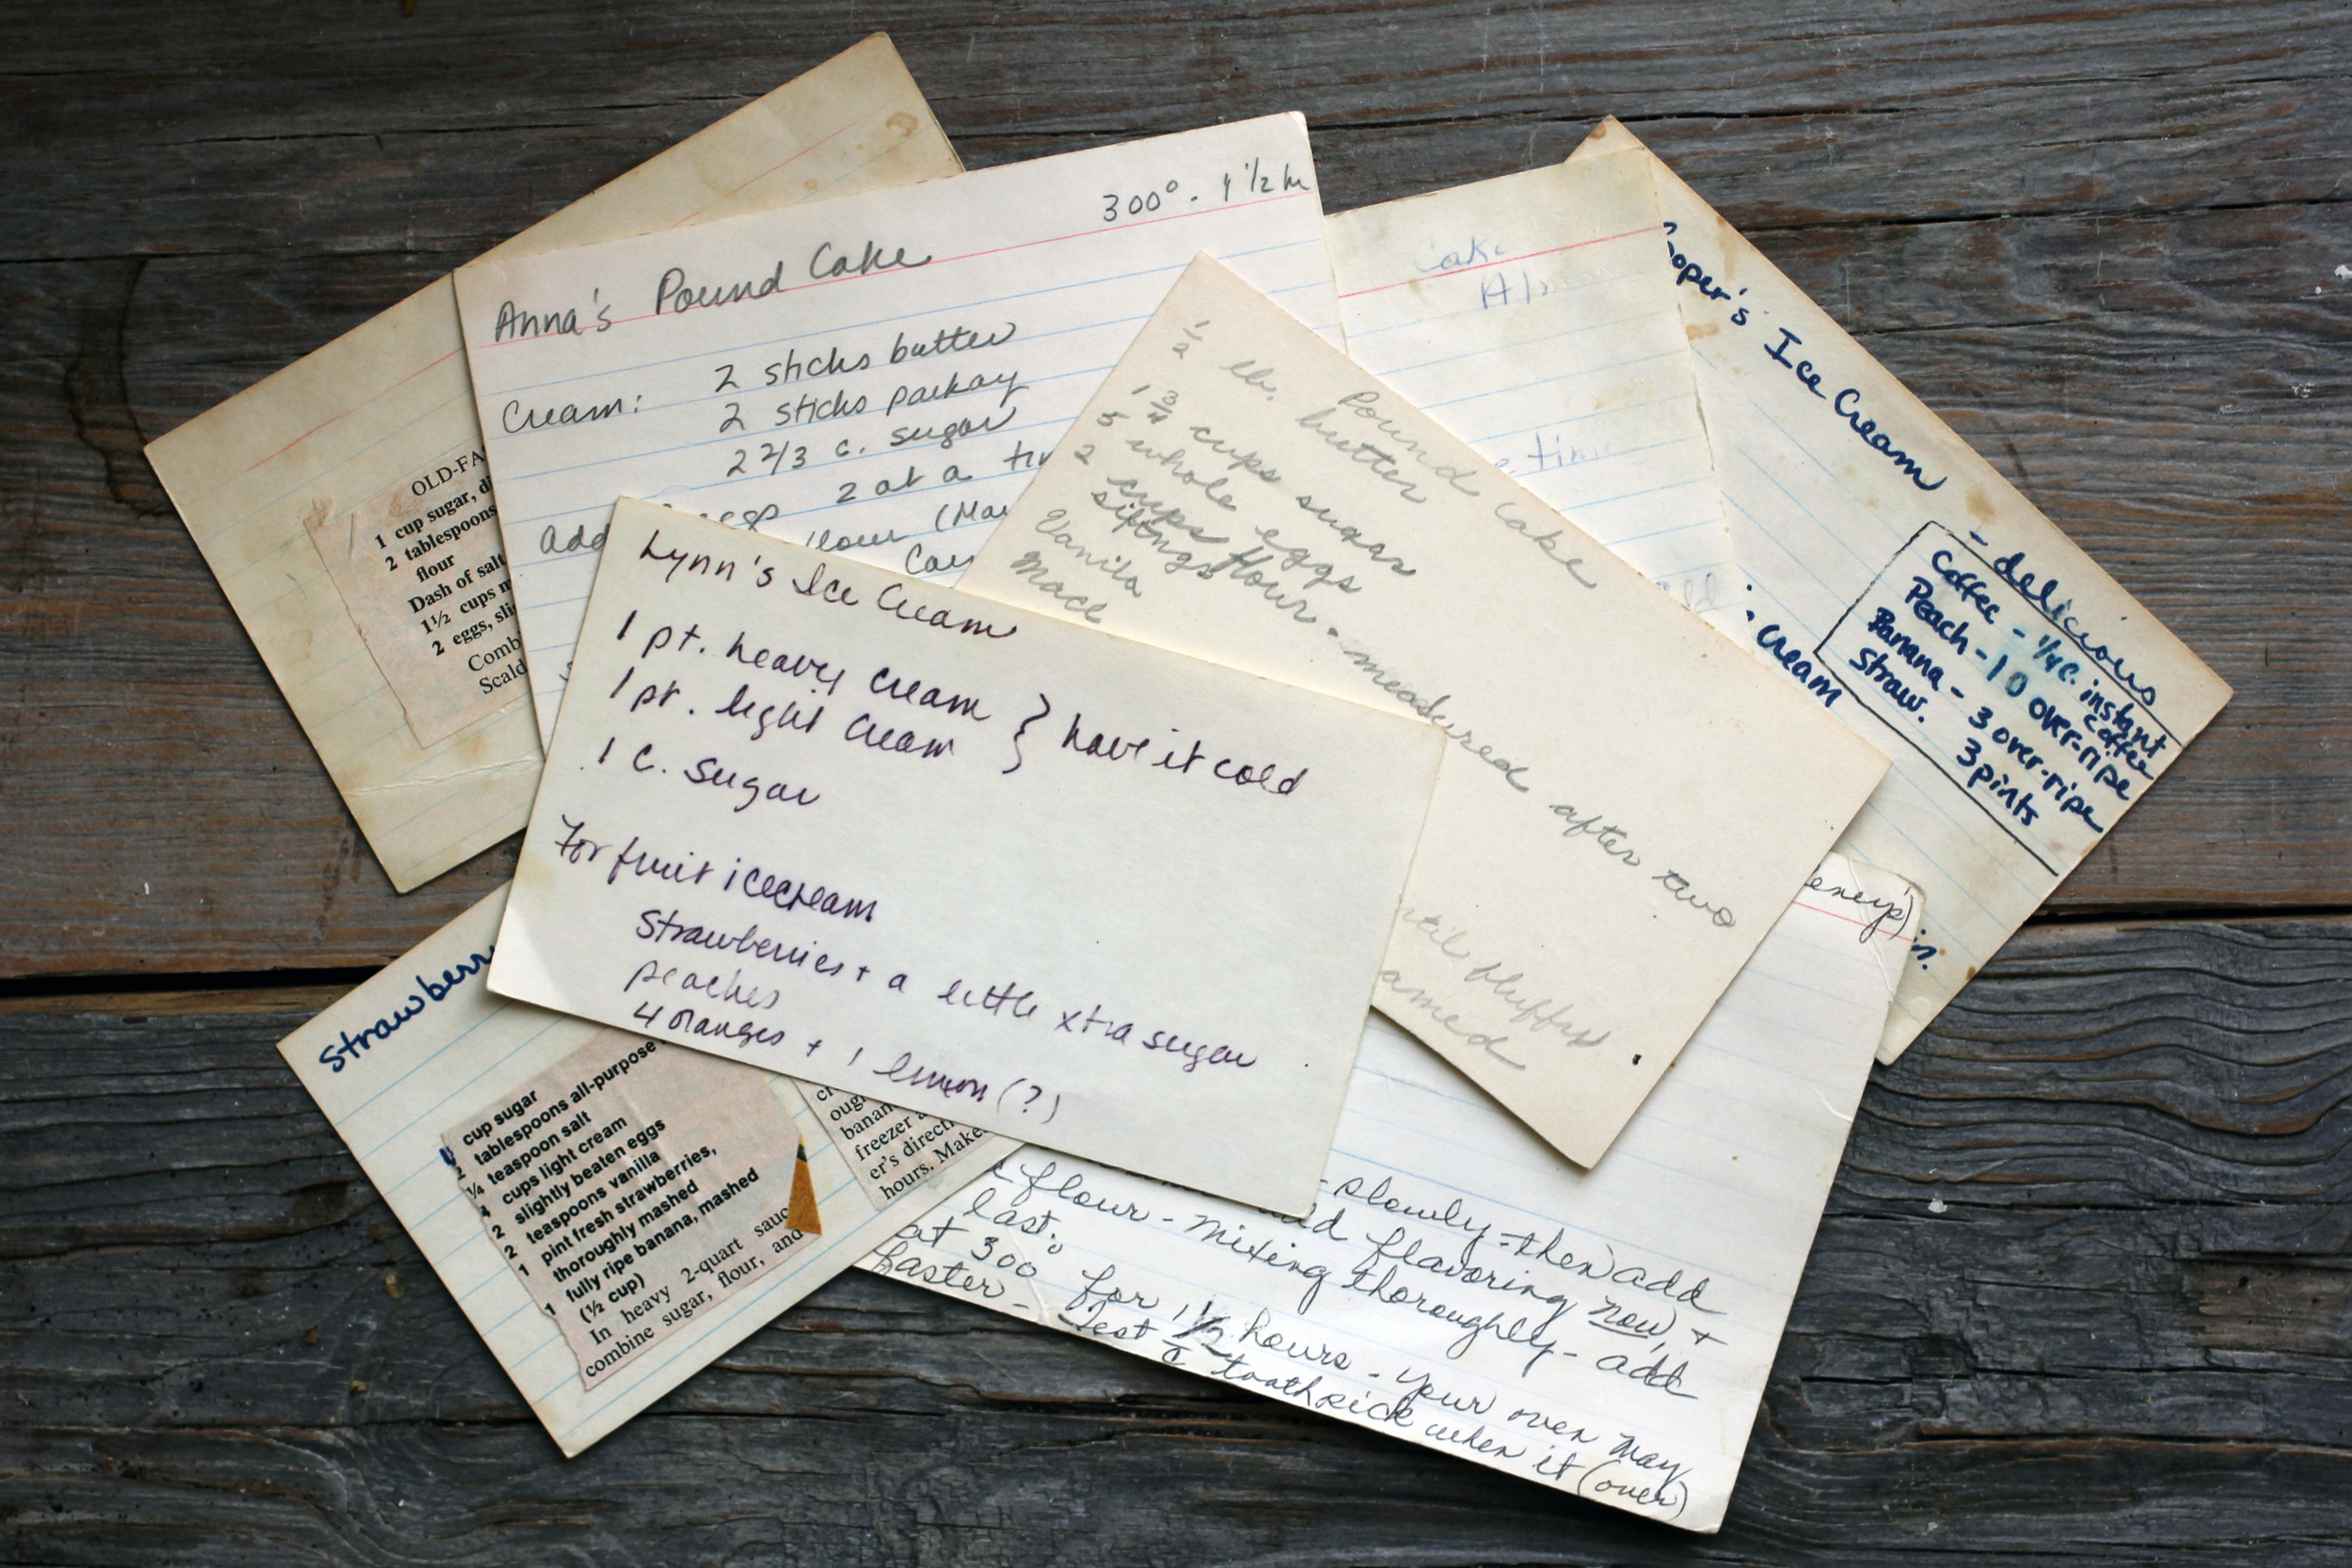 OLD-FA
1 cup sugar, di
2 tablespoons
flour
Dash of salt
1½ cups m
2 eggs, sli
Comb
Scald
300° - 1 1/2 hr
Anna's Pound Cake
Cream: 2 sticks butter
2 sticks parkay
2 2/3 c. sugar
Add 2 at a
(Mar
Pound Cake
1/2 lb. butter
1 3/4 cups sugar
5 whole eggs
2 cups flour - measured after two
siftngs
Vanila
Mace
until fluffy
Cake
oper's Ice Cream
- delicious
Coffee - 1/4 c. instant
coffee
Peach - 10 over-ripe
Banana - 3 over-ripe
Straw. 3 pints
Cream
Lynn's Ice Cream
1 pt. heavy cream } have it cold
1 pt. light cream
1 c. sugar
For fruit icecream
Strawberries + a little xtra sugar
peaches
4 oranges + 1 lemon (?)
Strawberr
cup sugar
2 tablespoons all-purpose
¼ teaspoon salt
4 cups light cream
2 slightly beaten eggs
2 teaspoons vanilla
1 pint fresh strawberries,
thoroughly mashed
1 fully ripe banana, mashed
(½ cup)
In heavy 2-quart sauc
combine sugar, flour, and
oug
banan
freezer a
er's directi
hours. Make
- slowly - then add
flour - mixing thoroughly - add
add flavoring now, +
last.
at 300 for 1 1/2 hours - your oven may
faster - Test c toothpick when it (over)